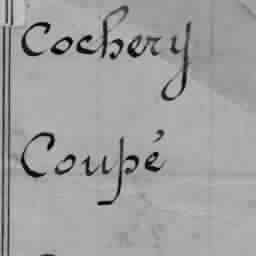 Cochery
Coupé